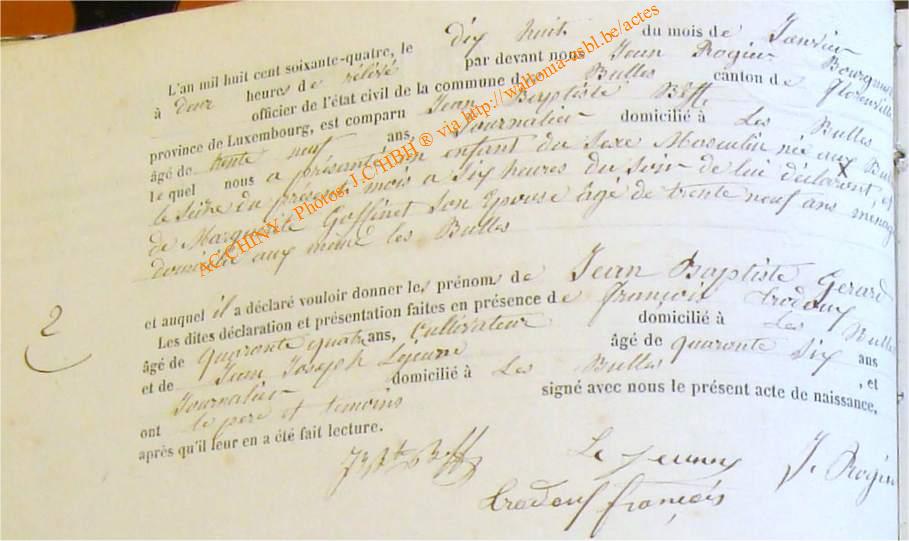 L'an mil huit cent soixante-quatre, le dix huit du mois de Janvier
à deux heures de relevé par devant nous Jean Rogier Bourgmestre
officier de l'état civil de la commune des Bulles canton de Florenville
province de Luxembourg, est comparu Jean Baptiste Beff
âgé de trente neuf ans, Journalier domicilié à Les Bulles
Le quel nous a présenté un enfant du sexe Masculin née aux Bulles
le seize du présent mois a six heures du soir de lui déclarant, et
de Marguerite Goffinet son Epouse âge de trente neuf ans ménagère
domicilié aux même les Bulles
2
et auquel il a déclaré vouloir donner les prénoms de Jean Baptiste Gerard
Les dites déclaration et présentation faites en présence de François
âgé de quaronte quatre ans, Cultivateur domicilié à Les Bulles
et de Jean Joseph Lejeune âgé de quaronte six ans
Journalier domicilié à Les Bulles , et
ont le père et temoins signé avec nous le présent acte de naissance,
après qu'il leur en a été fait lecture.
JBte Beff Le jeune J. Rogier
françois
AC CHINY - Photos: J.C/HBH ® via http://wallonia-asbl.be/actes